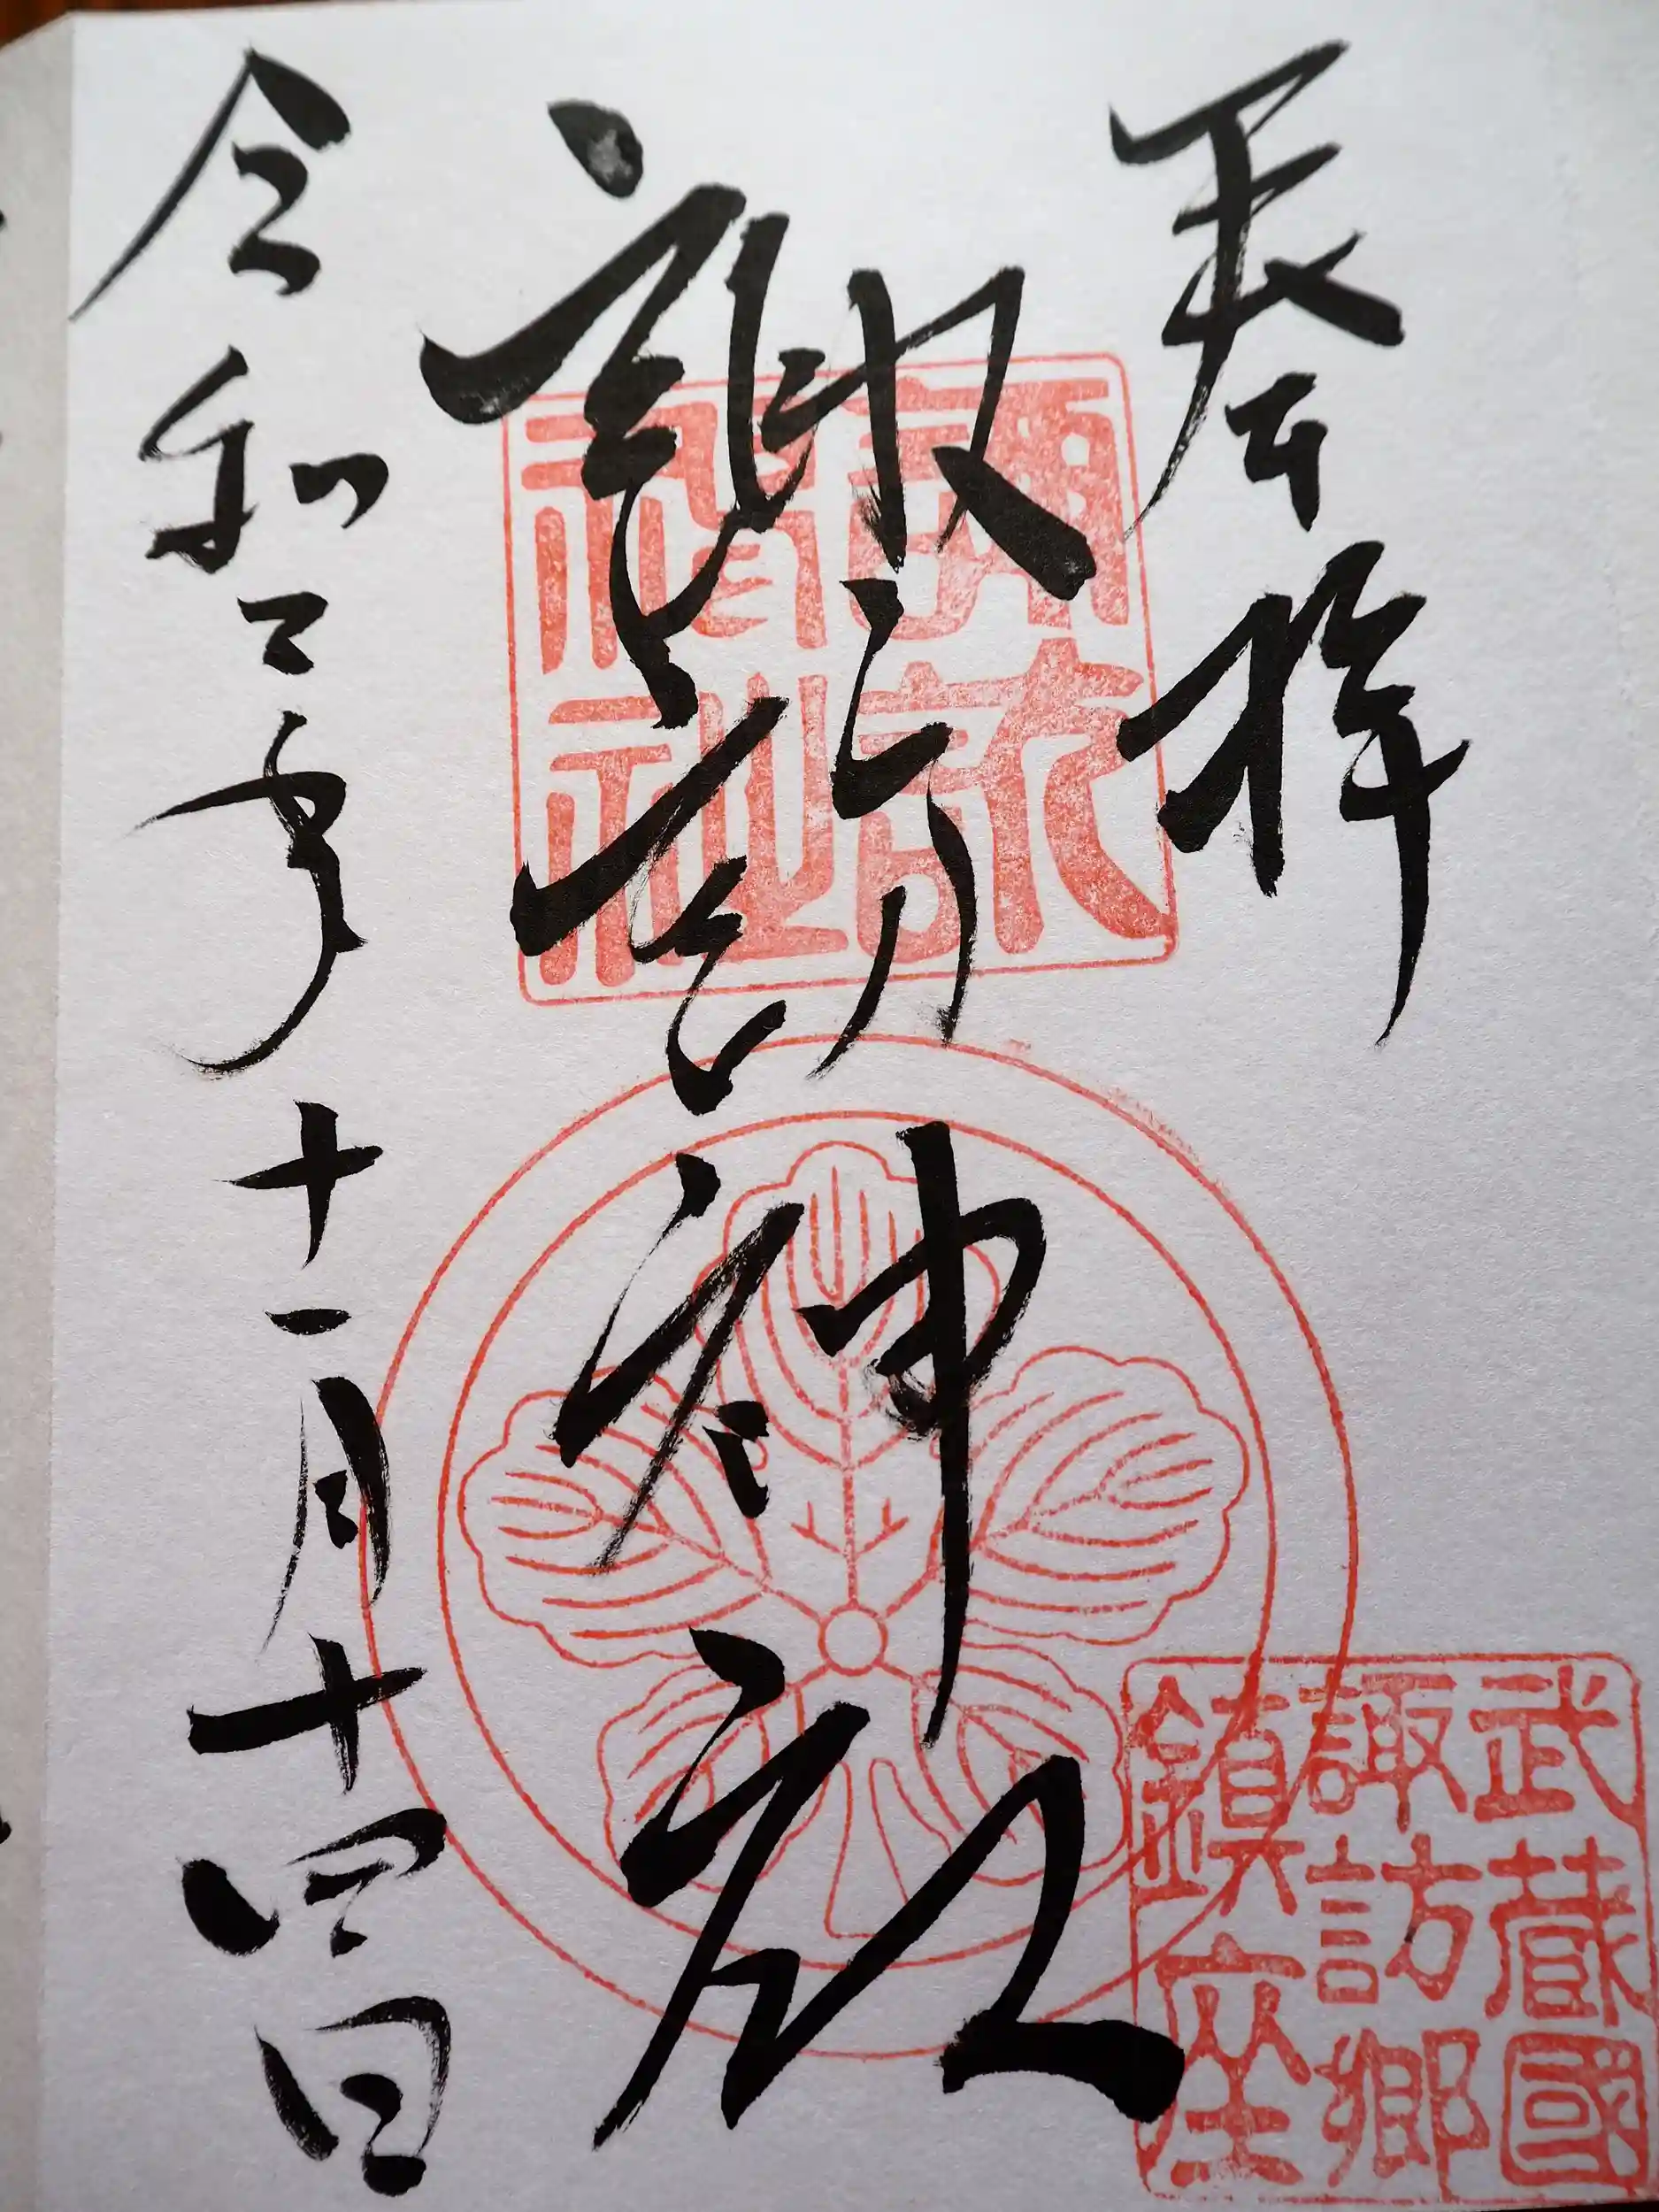 奉拝
諏訪神社
令和二年十一月十四日
諏訪
神社
武蔵國
諏訪郷
鎮座